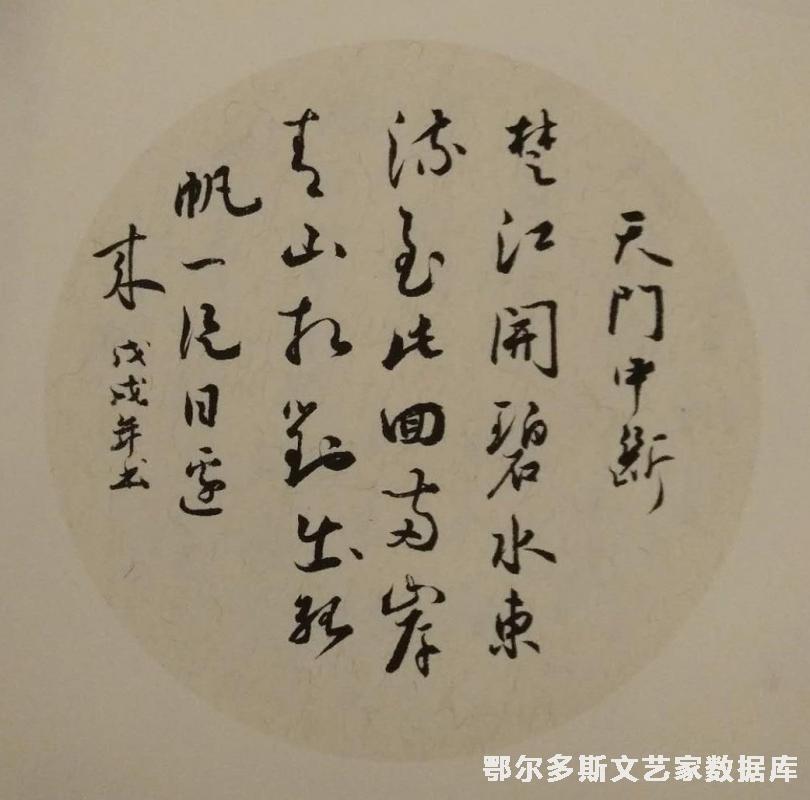 天門中斷
楚江開碧水東
流至此回兩岸
青山相對出孤
帆一片日邊
來
戊戌年書
鄂尔多斯文艺家数据库